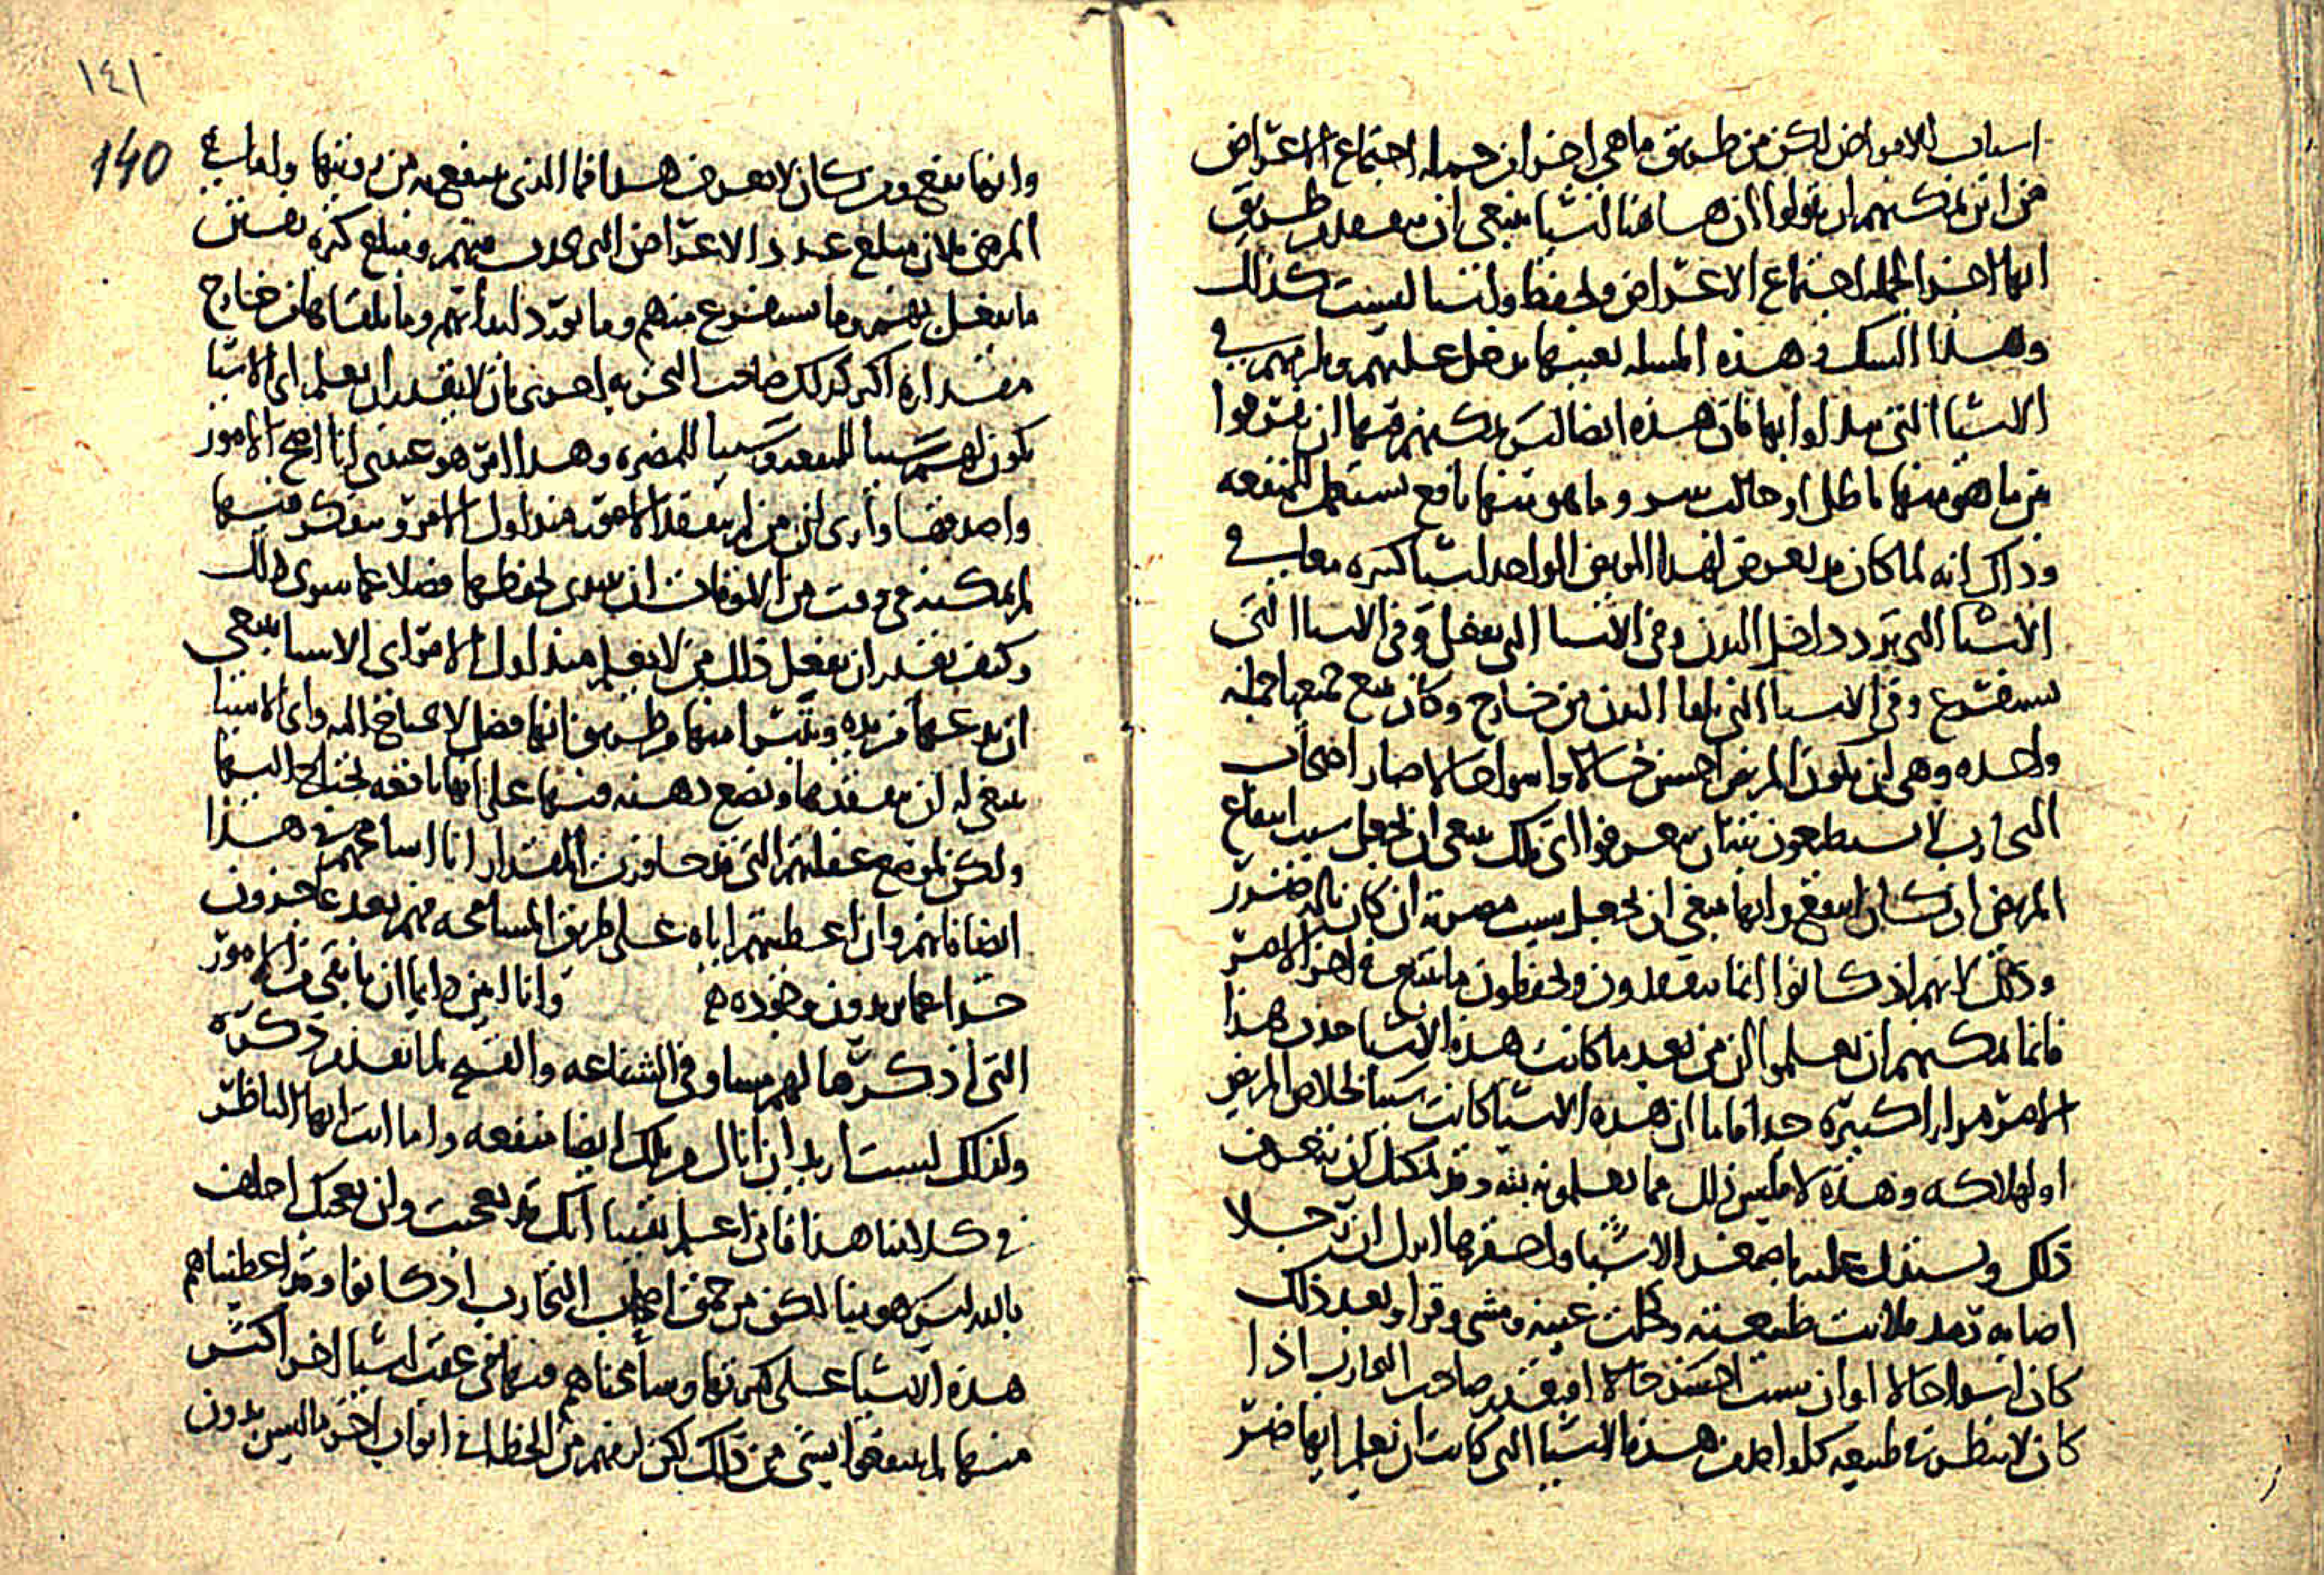 اسباب للامراض لكن من طريق ما هي اجزا من جمله اجتماع الاعراض
من اين يمكنهم ان يقولوا ان هاهنا اشيا ينبغي ان تتفقد من طريق
انها اجزا لجمله اجتماع الاعراض وتحفظ واشيا ليست كذلك
وهذا الشك في هذه المسله بعينها يدخل عليهم ويلزمهم في
الاشيا التي يداوا بها فان هذه ايضا ليس يمكنهم فيها ان يفرقوا
بين ما هو منها باطل او حالب وما هو منها نافع يستعمل للمنفعه
وذلك انه لما كان قد يعرض لهذا المريض الواحد اشيا كثيره معا في
الاشيا التي ترد داخل البدن وفي الاشيا التي يفعل وفي الاشيا التي
تستفرغ وفي الاشيا التي تلقا البدن من خارج وكان يتبع جميعها جمله
واحده وهي ان يكون المريض احسن حالا واسوا حالا صار اصحاب
التجارب لا يستطيعون بتتا ان يعرفوا اي تلك ينبغي ان يجعل سبب انتفاع
المريض ان كان انتفع وايها ينبغي ان يجعل سبب مضرته ان كان ناله ضرر
وذلك لانهم اذ كانوا انما يتفقدون ويحفظون ما يتبع في اخر الامر
فانما يمكنهم ان يعلموا ان من بعد ما كانت هذه الاشيا حدث هذا
الامر مرارا كثيره جدا فاما ان هذه الاشيا كانت سببا لخلاص المريض
او لهلاكه وهذه لا فليس ذلك مما يعلمونه بته وقد يمكنك ان تتعرف
ذلك وتستدل عليه باصغر الاشيا واحقرها اقول ان رجلا
اصابه رمد فلانت طبيعته وكحلت عينه ومشى وقرا وبعد ذلك
كان اسوا حالا او ان شيت احسن حالا افيقدر صاحب التجارب اذا
كان لا ينظر في طبيعه كل واحد من هذه الاشيا التي كانت ان يعلم ايها ضر
١٤١
140
وايها نفع ومن كان لا يعرف هذا فما الذي ينتفع به من رويتها ولقايه
المرضى فلان مبلغ عدد الاعراض التي تحدث فيهم ومبلغ كثره نفس
ما يفعل بهم وما يستفرغ منهم وما يورد ابدانهم وما يلقاها من خارج
مقداره اكثر كذلك صاحب التجربه احرى بان لا يقدر ان يعلم اي الاشيا
يكون لهم سببا للمنفعه وسببا للمضره وهذا امر هو عندي انا اصح الامور
واصدقها وارى ان من لم يتفقد الامور منذ اول الامر ويتفكر فيها
لم يمكنه في وقت من الاوقات ان يبتدي لحفظها فضلا عما سوى ذلك
وكيف يقدر ان يفعل ذلك من لا يعلم منذ اول الامر اي الاشيا ينبغي
ان يدعها من يده ويتبرا منها من طريق انها فضل لا يحتاج اليه واي الاشيا
ينبغي له ان يتفقدها ويضع ذهنه فيها على انها نافعه يحتاج اليها
ولكن لموضع غفلتهم التي قد جاوزت المقدار انا اسامحهم في هذا
ايضا فانهم وان اعطيتهم اياه على طريق المسامحه فهم بعد عاجزون
جدا عما يريدون وجوده ۵ وانا ابين دايما ان باقي الامور
التي اذكرها لهم مساو في الشناعه والقبح لما تقدم ذكره
ولذلك ليست اريد ان انال من تلك ايضا منفعه واما انت ايها الناظر
في كلامنا هذا فاني اعلم يقينا انك قد تعجبت وان تعجبك احلف
بالله ليس هو منا لكن من حمق اصحاب التجارب اذ كانوا وقد اعطيناهم
هذه الاشيا على كثرتها وسامحناهم فيها في عقب اشيا اخر اكثر
منها لم ينتفعوا بشي من ذلك لكن لزمهم من الخطا في ابواب اخر ما ليس بدون